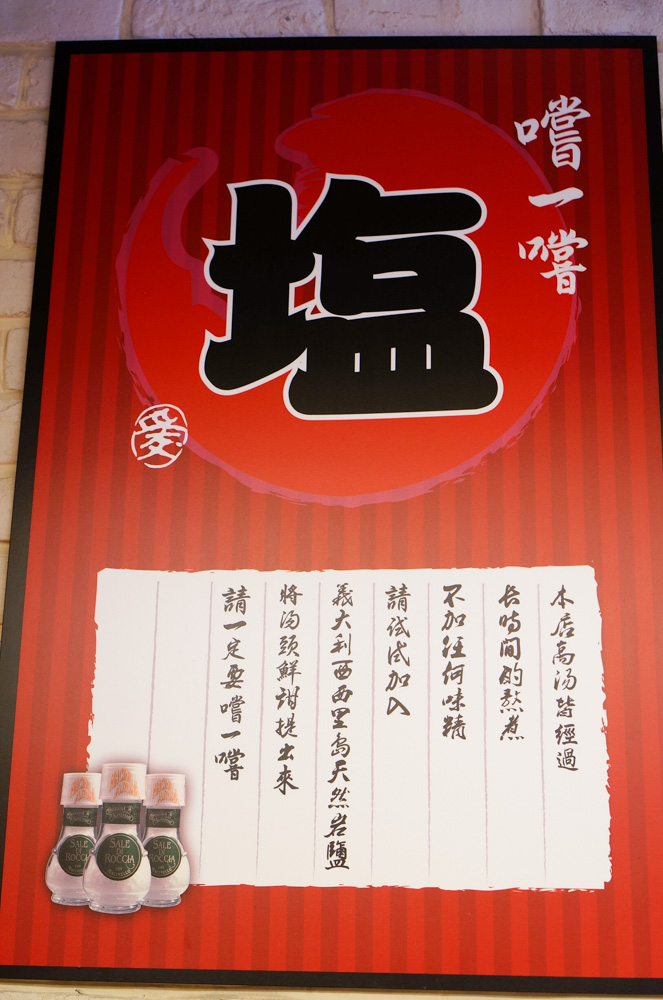 嚐一嚐
塩
愛
本店高汤皆經過
長時間的熬煮
不加任何味精
請试试加入
義大利西西里岛天然岩鹽
將汤頭鮮甜提出來
請一定要嚐一嚐
SALE
DI
ROCCIA
SALE
DI
ROCCIA
SALE
DI
ROCCIA